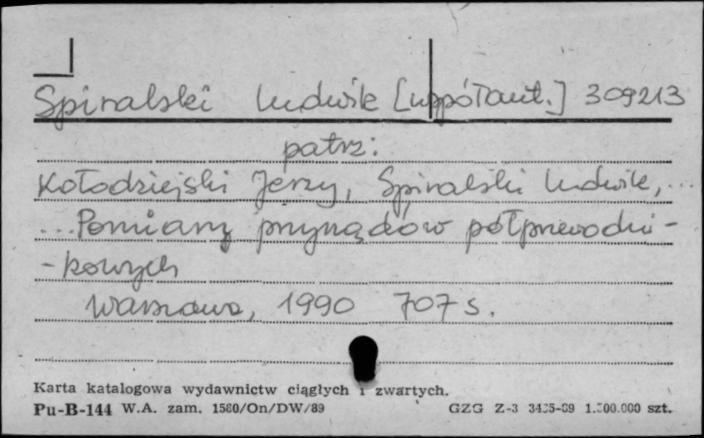 Spiralski Ludwik [współaut.] 309213
patrz:
Kołodziejski Jerzy, Spiralski Ludwik, ...
... Pomiary przyrządów półprzewodni-
-kowych
Warszawa, 1990 707 s.
Karta katalogowa wydawnictw ciągłych i zwartych.
Pu-B-144 W.A. zam. 1580/On/DW/89 GZG Z-3 1.500.000 szt.